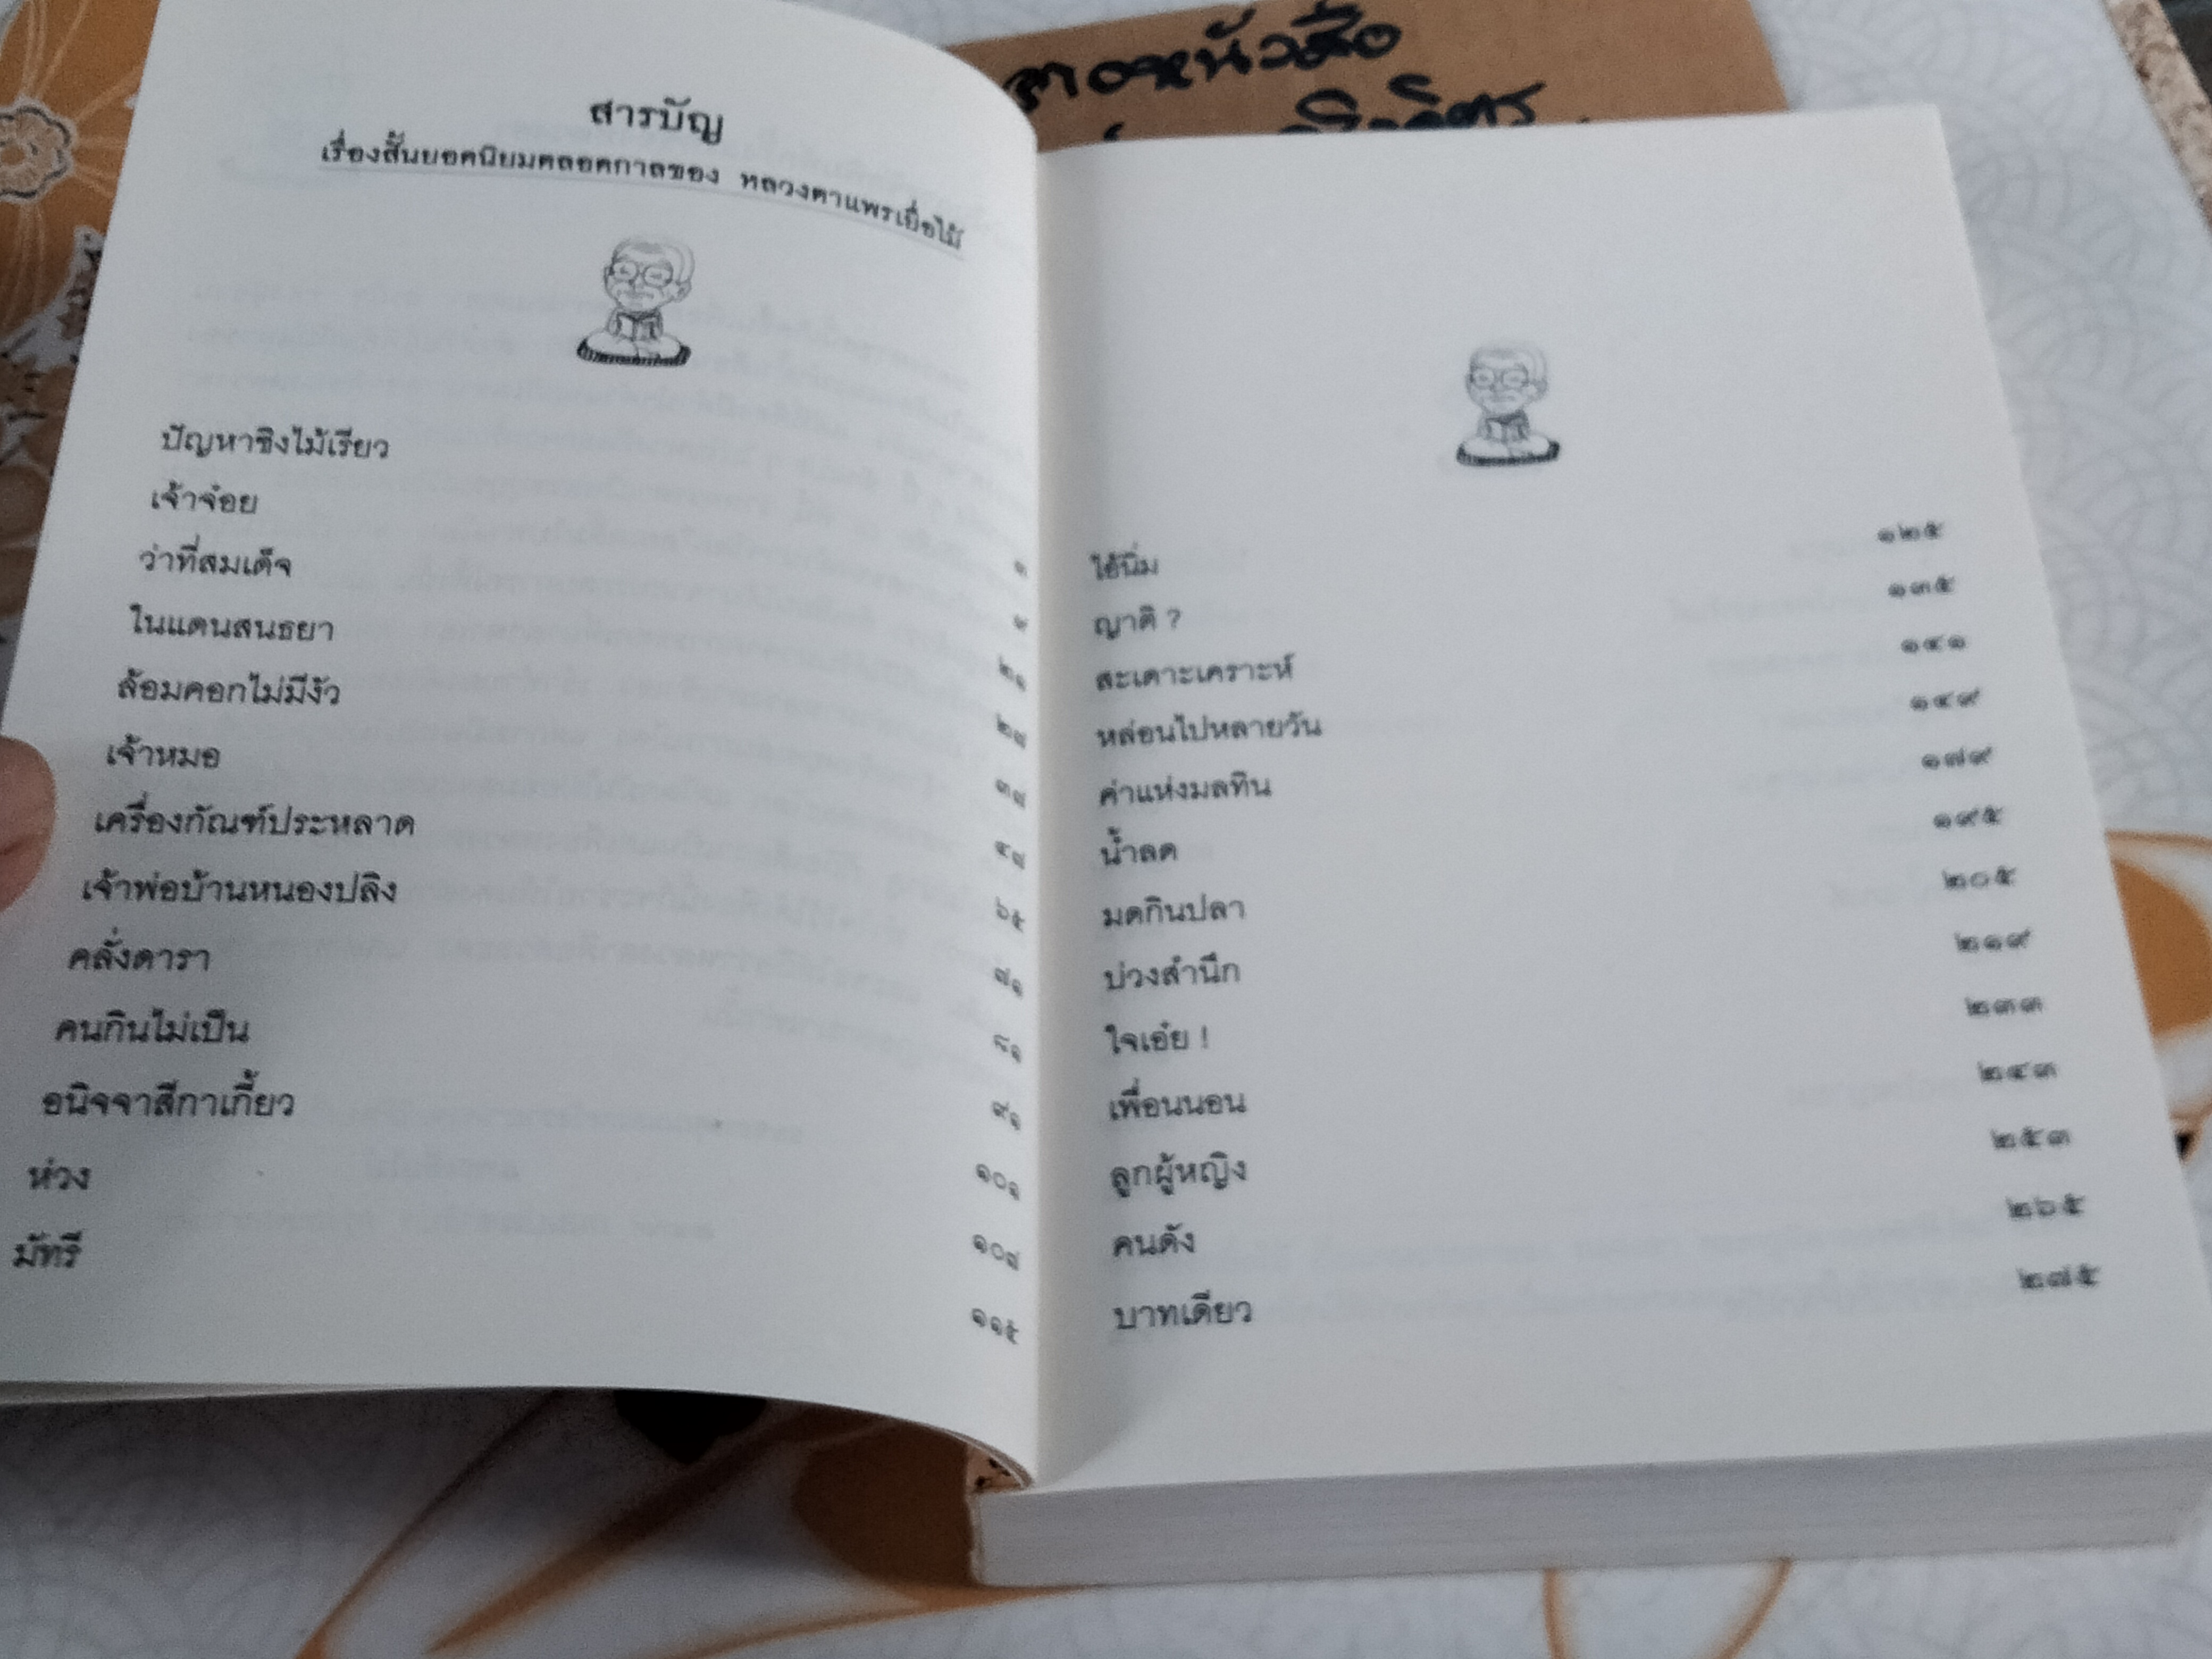 ลางหนังสือ
สารบัญ
เรื่องสั้นยอดนิยมตลอดกาลของ หลวงตาแพรเยื่อไม้
ปัญหาชิงไม้เรียว ๓
เจ้าจ๋อย ๙
ว่าที่สมเด็จ ๒๑
ในแดนสนธยา ๒๗
ล้อมคอกไม่มีงัว ๓๗
เจ้าหมอ ๔๗
เครื่องกัณฑ์ประหลาด ๖๕
เจ้าพ่อบ้านหนองปลิง ๗๑
คลั่งดารา ๘๑
คนกินไม่เป็น ๙๑
อนิจจาสีกาเกี้ยว ๑๐๑
ห่วง ๑๐๗
มัทรี ๑๑๕
ไอ้นิ่ม ๑๒๕
ญาติ ? ๑๓๕
สะเดาะเคราะห์ ๑๔๑
หล่อนไปหลายวัน ๑๔๙
ค่าแห่งมลทิน ๑๗๙
น้ำลด ๑๙๕
มดกินปลา ๒๐๕
บ่วงสำนึก ๒๑๙
ใจเอ๋ย ! ๒๓๓
เพื่อนนอน ๒๔๓
ลูกผู้หญิง ๒๕๓
คนดัง ๒๖๕
บาทเดียว ๒๗๕